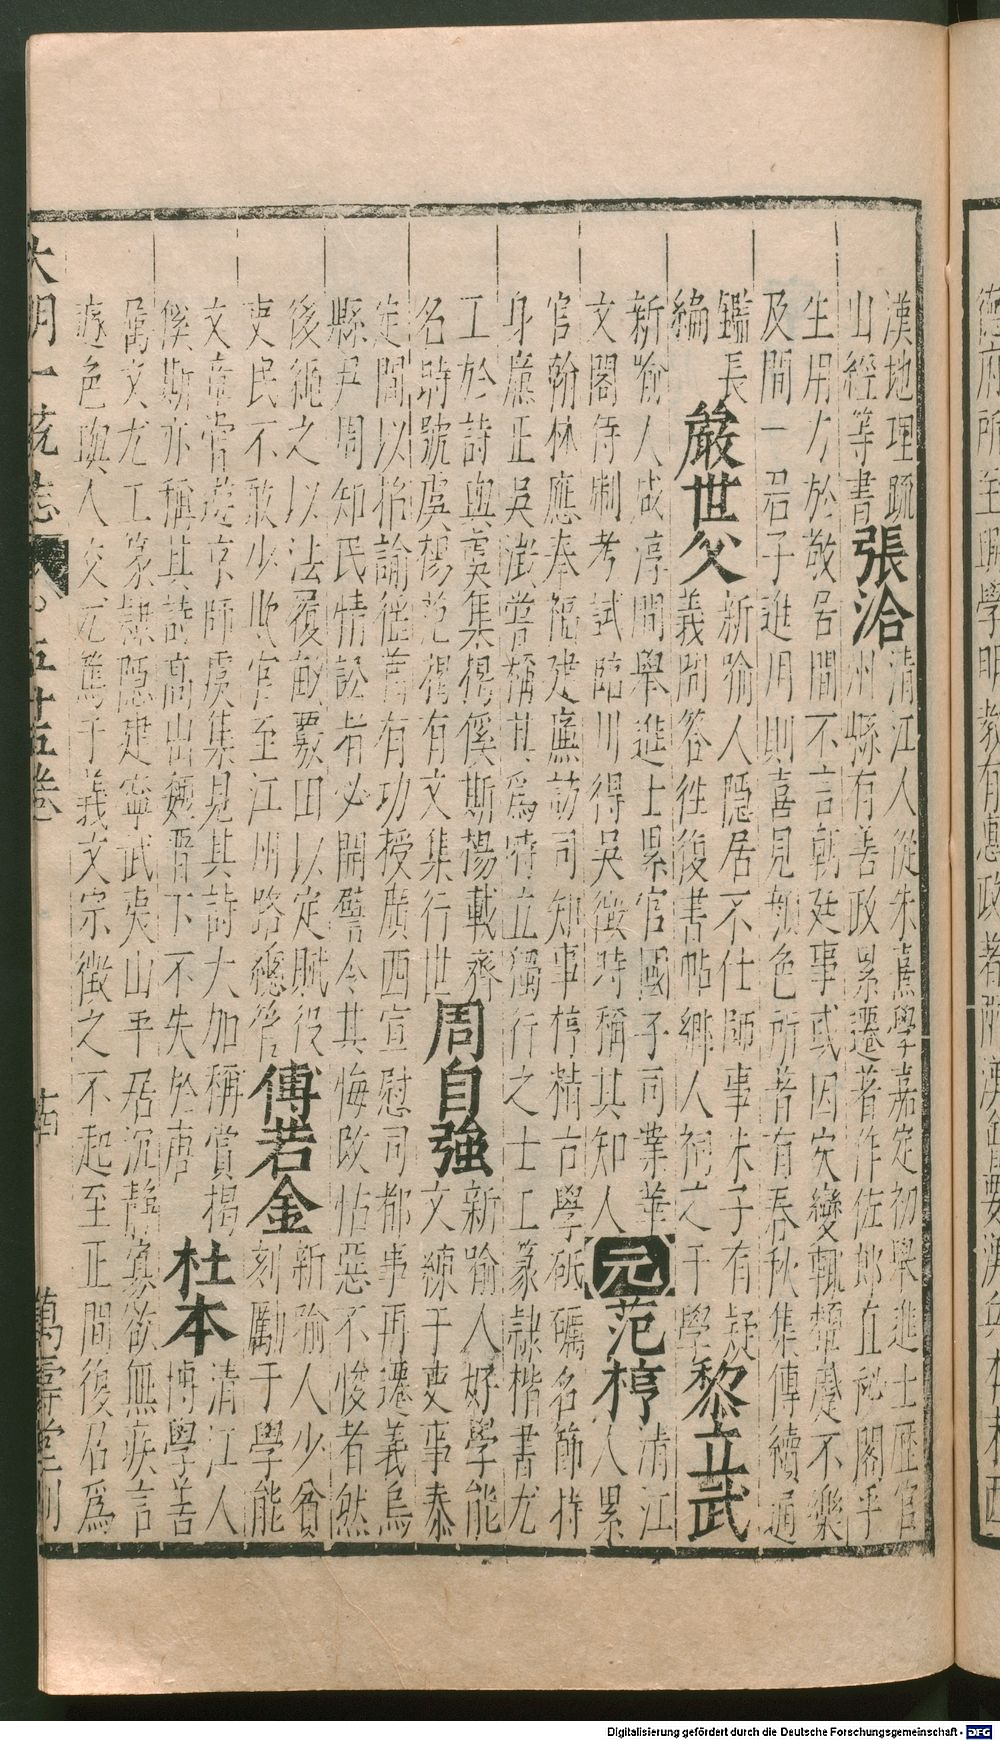 漢地理疏
山經等書張洽清江人從朱熹學嘉定初舉進士歷官
州縣有善政累遷著作佐郎直祕閣平
生用力於敬居閒不言朝廷事或因灾變輒顰蹙不樂
及聞一君子進用則喜見顏色所著有春秋集傳續通
鑑長
編嚴世父新喻人隱居不仕師事朱子有疑
義問答往復書帖鄉人祠之于學黎立武
新喻人咸淳間舉進士累官國子司業華
文閣待制考試臨川得吳澂時稱其知人元范梈清江
人累
官翰林應奉福建廉訪司知事梈精古學砥礪名節持
身廉正吳澂嘗稱其爲特立獨行之士工篆隸楷書尤
工於詩與虞集揭傒斯楊載齊
名時號虞楊范揭有文集行世周自強新喻人好學能
文練于吏事泰
定間以招諭徭蠻有功授廣西宣慰司都事再遷義烏
縣尹周知民情訟者必開譬令其悔改怙惡不悛者然
後繩之以法履畝覈田以定賦役
吏民不敢少欺官至江州路總管傅若金新喻人少貧
刻勵于學能
文章嘗遊京師虞集見其詩大加稱賞揭
傒斯亦稱其詩高出魏晋下不失於唐杜本清江人
博學善
屬文尤工篆隸隱建寧武夷山平居沉靜寡欲無疾言
遽色與人交尤篤于義文宗徵之不起至正間復召爲
大明一統志 卷之五十五卷 萬壽堂刊
Digitalisierung gefördert durch die Deutsche Forschungsgemeinschaft - DFG